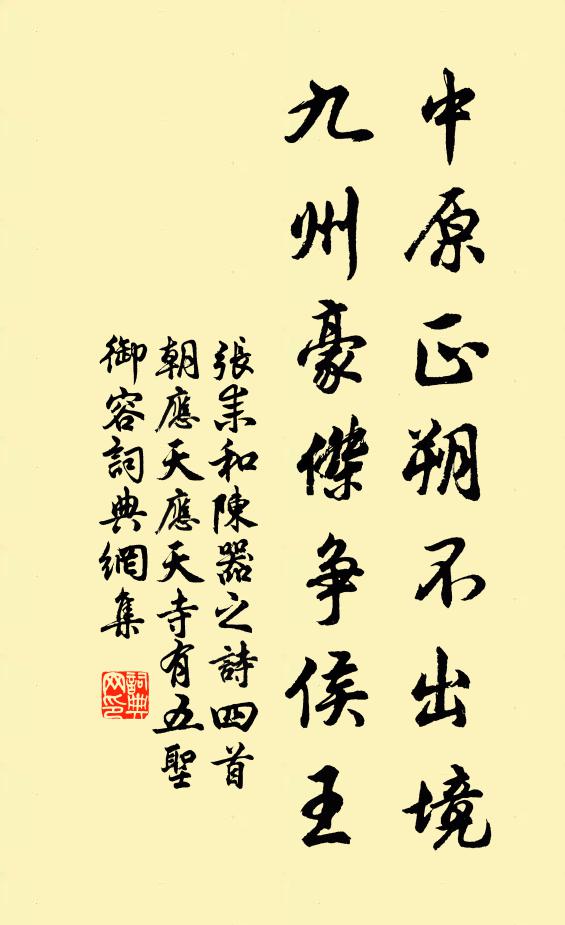 中原正朔不出境
九州豪傑争侯王
張耒和陳器之詩四首
朝應天應天寺有五聖
御容詞典網集
詞典
网印